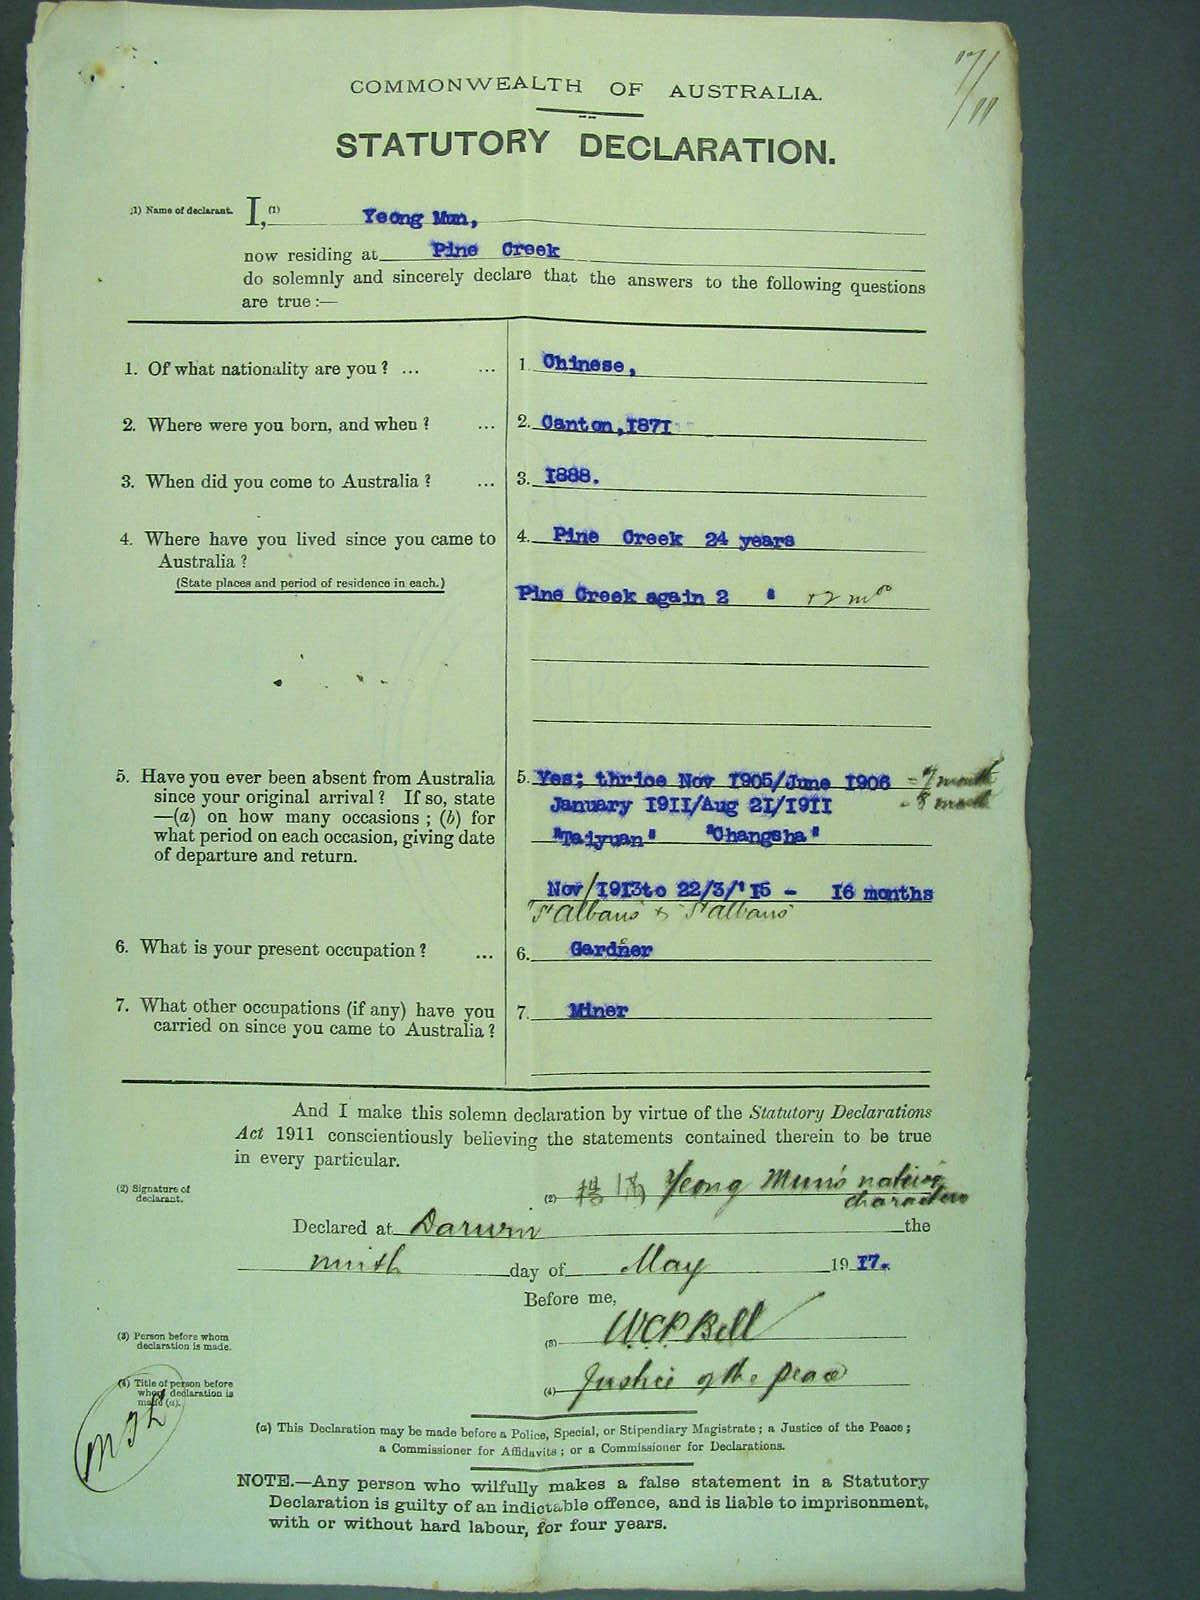 17/11
COMMONWEALTH OF AUSTRALIA.
STATUTORY DECLARATION.
(1) Name of declarant. I,(1) Yeong Mun,
now residing at Pine Creek
do solemnly and sincerely declare that the answers to the following questions
are true :—
1. Of what nationality are you ? ... ... 1. Chinese,
2. Where were you born, and when ? ... 2. Canton,1871
3. When did you come to Australia ? ... 3. 1888.
4. Where have you lived since you came to 4. Pine Creek 24 years
Australia ?
(State places and period of residence in each.)
Pine Creek again 2 " 12 mos
5. Have you ever been absent from Australia 5. Yes; thrice Nov 1905/June 1906 - 7 month
since your original arrival ? If so, state January 1911/Aug 21/1911 - 8 month
—(a) on how many occasions ; (b) for
what period on each occasion, giving date "Taiyuan" "Changsha"
of departure and return.
Nov/1913to 22/3/'15 - 16 months
"St Albans" & "St Albans"
6. What is your present occupation ? ... 6. Gardner
7. What other occupations (if any) have you 7. Miner
carried on since you came to Australia ?
And I make this solemn declaration by virtue of the Statutory Declarations
Act 1911 conscientiously believing the statements contained therein to be true
in every particular.
(2) Signature of
declarant.
(2) 楊 Yeong Mun's native
characters
Declared at Darwin the
ninth day of May 19 17.
Before me,
(3) Person before whom
declaration is made.
(3) W.C.P. Bell
(4) Title of person before
whom declaration is
made (a).
(4) Justice of the peace
(a) This Declaration may be made before a Police, Special, or Stipendiary Magistrate ; a Justice of the Peace ;
a Commissioner for Affidavits ; or a Commissioner for Declarations.
NOTE.—Any person who wilfully makes a false statement in a Statutory
Declaration is guilty of an indictable offence, and is liable to imprisonment,
with or without hard labour, for four years.